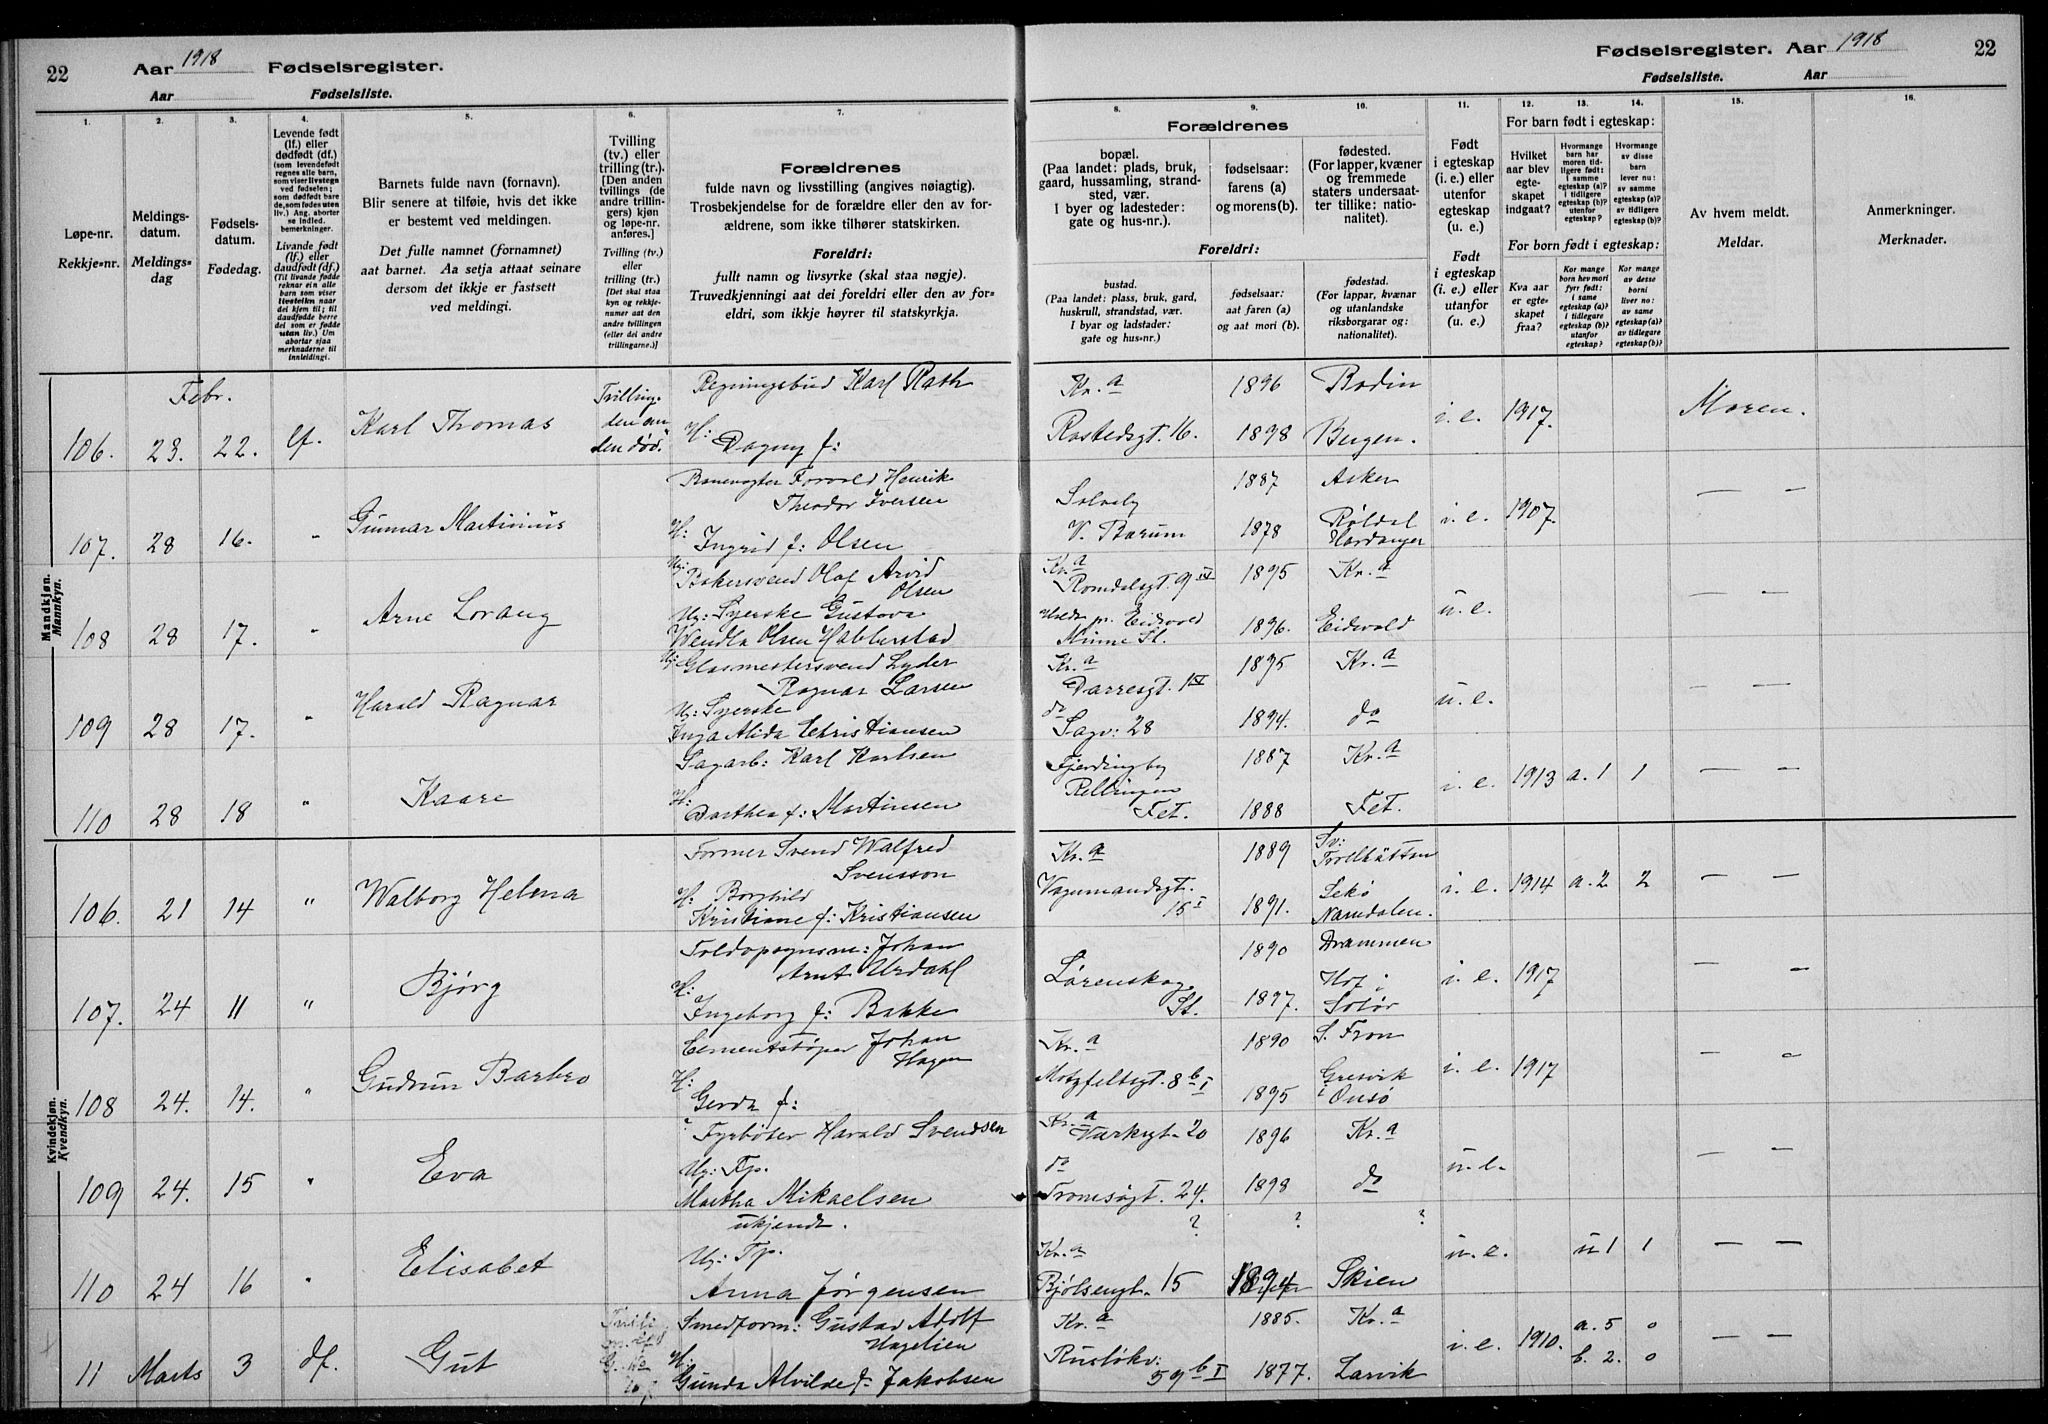 22 Aar 1918 Fødselsregister.
Aar Fødselsliste.
Fødselsregister. Aar 1918 22
Fødselsliste. Aar
1. 2. 3. 4. 5. 6. 7. 8. 9. 10. 11. 12. 13. 14. 15. 16.
Løpe-nr.
Rekkje-nr.
Meldings-
datum.
Meldings-
dag
Fødsels-
datum.
Fødedag.
Levende født
(lf.) eller
dødfødt (df.)
(som levendefødt
regnes alle barn,
som viser livstegn
ved fødselen;
som dødfødt bare
de, som fødes uten
liv.) Ang. aborter
se indled.
bemerkninger.
Livande født
(lf.) eller
daudfødt (df.)
(Til livande fødde
reknar ein alle
barn som viser
livsteikn naar
dei kjem til; til
daudfødde berre
dei som er fødde
utan liv.) Um
abortar sjaa
merknaderne til
innleidingi.
Barnets fulde navn (fornavn).
Blir senere at tilføie, hvis det ikke
er bestemt ved meldingen.
Det fulle namnet (fornamnet)
aat barnet. Aa setja attaat seinare
dersom det ikkje er fastsett
ved meldingi.
Tvilling
(tv.) eller
trilling (tr.).
[Den anden
tvillings (de
andre trillin-
gers) kjøn
og løpe-nr.
anføres.]
Tvilling (tv.)
eller
trilling (tr.)
[Det skal staa
kyn og rekkje-
numer aat den
andre tvillingen
(eller dei andre
trillingarne.)]
Forældrenes
fulde navn og livsstilling (angives nøiagtig).
Trosbekjendelse for de forældre eller den av for-
ældrene, som ikke tilhører statskirken.
Foreldri:
fullt namn og livsyrke (skal staa nøgje).
Truvedkjenningi aat dei foreldri eller den av for-
eldri, som ikkje høyrer til statskyrkja.
Forældrenes
bopæl.
(Paa landet: plads, bruk,
gaard, hussamling, strand-
sted, vær.
I byer og ladesteder:
gate og hus-nr.).
fødselsaar:
farens (a)
og morens (b).
fødested.
(For lapper, kvæner
og fremmede
staters undersaat-
ter tillike: natio-
nalitet).
Foreldri:
bustad.
(Paa landet: plass, bruk, gard,
huskrull, strandstad, vær.
I byar og ladstader:
gate og hus-nr.)
fødselsaar:
aat faren (a)
og aat mori (b).
fødestad.
(For lappar, kvænar
og utanlandske
riksborgarar og:
nationalitet).
Født
i egteskap
(i. e.) eller
utenfor
egteskap
(u. e.)
Født
i egteskap
(i. e.) eller
utanfor
(u. e.)
For barn født i egteskap:
Hvilket
aar blev
egte-
skapet
indgaat?
Hvormange
barn har
moren tid-
ligere født:
i samme
egteskap (a)?
i tidligere
egteskap (b)?
utenfor
egteskap?
Hvormange
av disse
lever nu:
av samme
egteskap (a)?
av tidligere
egteskap (b)?
For born født i egteskap:
Kva aar
er egte-
skapet
fraa?
Kor mange
born hev mori
fyrr født:
i same
egteskap (a)?
i tidlegare
egteskap (b)?
utanfor
egteskap?
Kor mange
av desse
borni
liver no:
av same
egteskap (a)?
av tidlegare
egteskap (b)?
Av hvem meldt.
Meldar.
Anmerkninger.
Merknader.
Mandkjøn.
Mannkyn.
Febr.
106. 23. 22. lf. Karl Thomas Tvilling, den an den død. Regningsbud Karl Rath Kr.a 1896 Bodin i. e. 1917. Moren.
H: Dagny f: Rostedsgt. 16. 1898 Bergen.
107. 28 16. " Gunnar Martinius Banevogter Torvald Henrik 1887 Asker
Theodor Iversen Solveby i. e. 1907. — —
H: Ingrid f: Olsen V. Bærum 1878 Røldal Hardanger
108 28 17. " Arne Lorang Ug: Bakersvend Olaf Arvid Kr.a 1895 Kr.a
Olsen Romdalsgt. 9 IV u. e. — —
Ug: Syerske Gustava Eidsvold 1896. Eidsvold
Wendla Olsen Habberstad Minne St.
109 28 17. " Harald Ragnar Ug: Glasmestersvend Lyder Kr.a 1895 Kr.a
Ragnar Larsen Darresgt. 1 IV u. e. — —
Ug: Syerske do
Inga Alida Christiansen Sagv: 28 1894. do
110 28 18 " Kaare Sagarb: Karl Karlsen Fjerdingby 1887 Kr.a i. e. 1913 a. 1 1 — —
Rellingen
H: Barthea f: Martinsen Fet. 1888 Fet.
Kvindekjøn.
Kvendkyn.
106. 21 14 " Walborg Helena Former Svend Walfred Kr.a 1889 Sv: Trollhättan
Svensson Vognmandsgt. i. e. 1914 a. 2 2 — —
H: Borghild 15 I Lekø
Kristiane f: Kristiansen 1891. Namdalen.
107. 24 11 " Bjørg Toldopsynsm: Johan 1890 Drammen
Arnt Urdahl Lørenskog i. e. 1917 — —
H: Ingeborg f: Bakke St. 1897. Hof i Solør
108 24. 14. " Gudrun Barbro Cementstøper Johan Kr.a 1890 S. Fron
Hagen Motzfeltsgt. 8 b I i. e. 1917 — —
H: Gerda f: 1895 Gresvik i Onsø
109 24. 15 " Eva Fyrbøter Harald Svendsen Kr.a Markvt. 20 1896 Kr.a
Ug: Tp. do u. e. — —
Martha Mikaelsen Tromsøgt. 24. 1898 do
110 24 16 " Elisabet ukjendt. ? ? ?
Ug: Tp. Kr.a u. e. u 1 1 — —
Anna Jørgensen Bjølsengt. 15 1894 Skien
11 Marts 3 df. Gut Smedform: Gustav Adolf Kr.a 1885. Kr.a a. 5 0
Hagelien Rusløkv: i. e. 1910. b. 2. 0 — —
H: Gunda Alvilde f. Jakobsen 59 b I 1877. Larvik